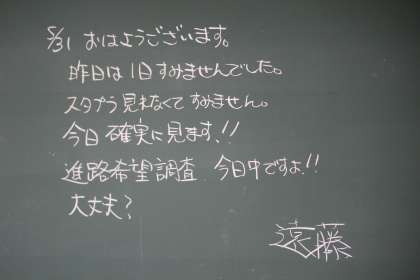 5/31 おはようございます。
昨日は1日すみませんでした。
スタプラ見れなくてすみません。
今日確実に見ます!!
進路希望調査 今日中ですよ!!
大丈夫?
遠藤